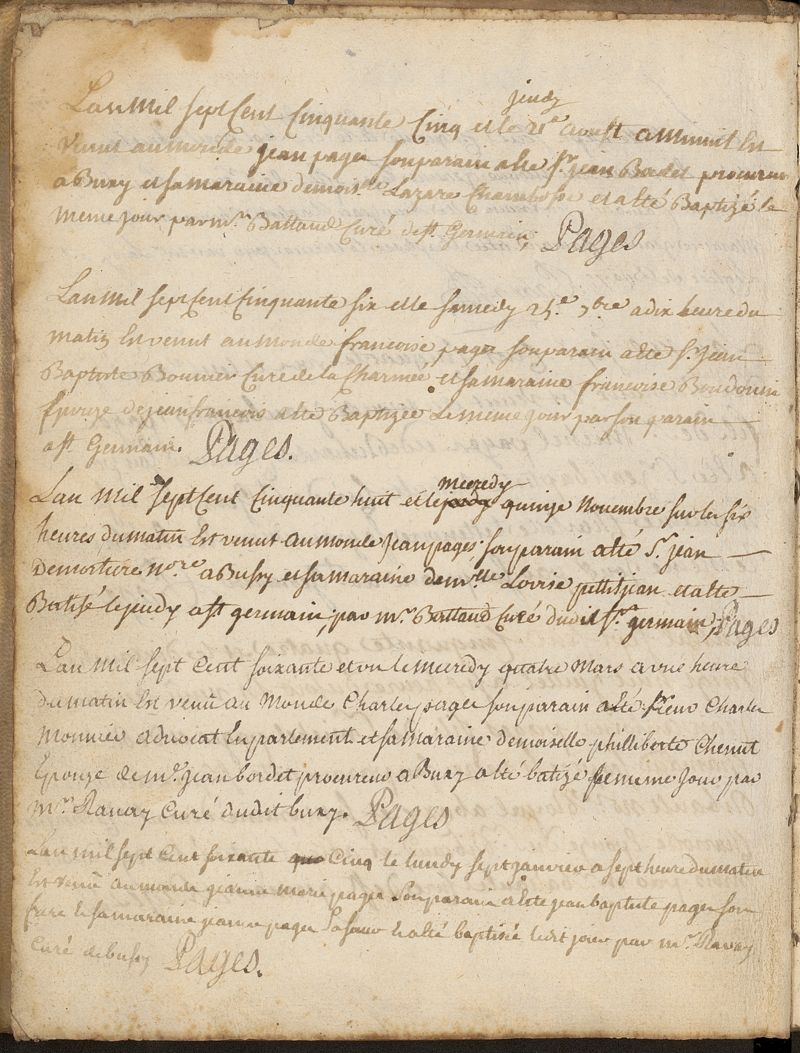 jeudy
Lan Mil sept Cent Cinquante Cinq et le 21e aoust a minuit Est
venut au monde jean pages son parain a ete Sr. jean Bordet procureur
a Buxy et sa maraine demoislle Lazare Chambosse et a été Baptizé le
meme jour par mr. Battaud Curé de st Germain, Pages
Lan Mil sept Cent Cinquante six et le samedy 25e 7bre a dix heure du
matin Est venut au monde francoise pages son parain a ete Sr. jean
Baptiste Bouvier Curé de la Charmée et sa maraine francoise Boudouin
Epouze de jean francois a ete Baptizée Le meme jour par son parain
a st Germain. Pages.
mecredy
Lan Mil sept Cent Cinquante huit et le jeudy quinze Novembre sur les six
heures du matin Est venut au monde jean pages son parain a été Sr. jean
Demortiere nore a Bussy et sa maraine demlle Lovise petitjean et a ete
Batisé le jeudy a st germain, par mr. Battaud Curé dudit st. germain, Pages
Lan Mil sept Cent soixante et un le mecredy quatre Mars a une heure
du matin Est venû au Monde Charles pages son parain a été sieur Charles
Monnier advocat En parlement et sa maraine demoiselle philliberte Chenut
Epouze de mr. jean bordet procureur a Buxy a été batizé le meme Jour par
mr. Ravay Curé dudit buxy. Pages
Lan mil sept Cent soixante qua Cinq le lundy sept janvier a sept heure du matin
Est venû au monde jeanne marie pages son parain a été jean baptiste pages son
frere et sa maraine jeanne pages sa sœur et a été baptisée ledit jour par mr. Ravay
Curé de bussy Pages.